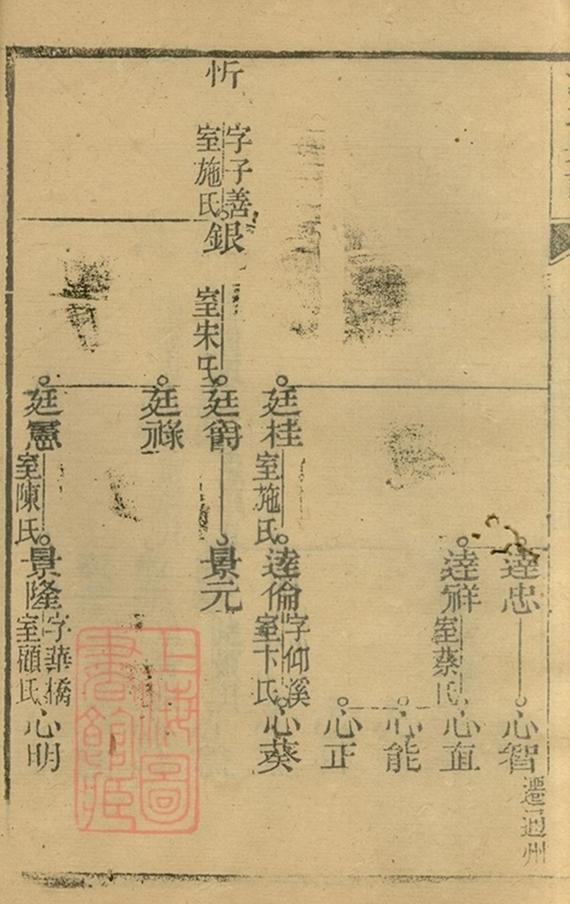 逵忠
心智
遷通州
逵祥
室蔡氏
心直
心能
心正
廷桂
室施氏
逵倫
字仰溪
室卞氏
心葵
忻
字子善
室施氏
銀
室朱氏
廷爵
景元
廷祿
廷憲
室陳氏
景隆
字華橋
室顧氏
心明
上海圖書館藏